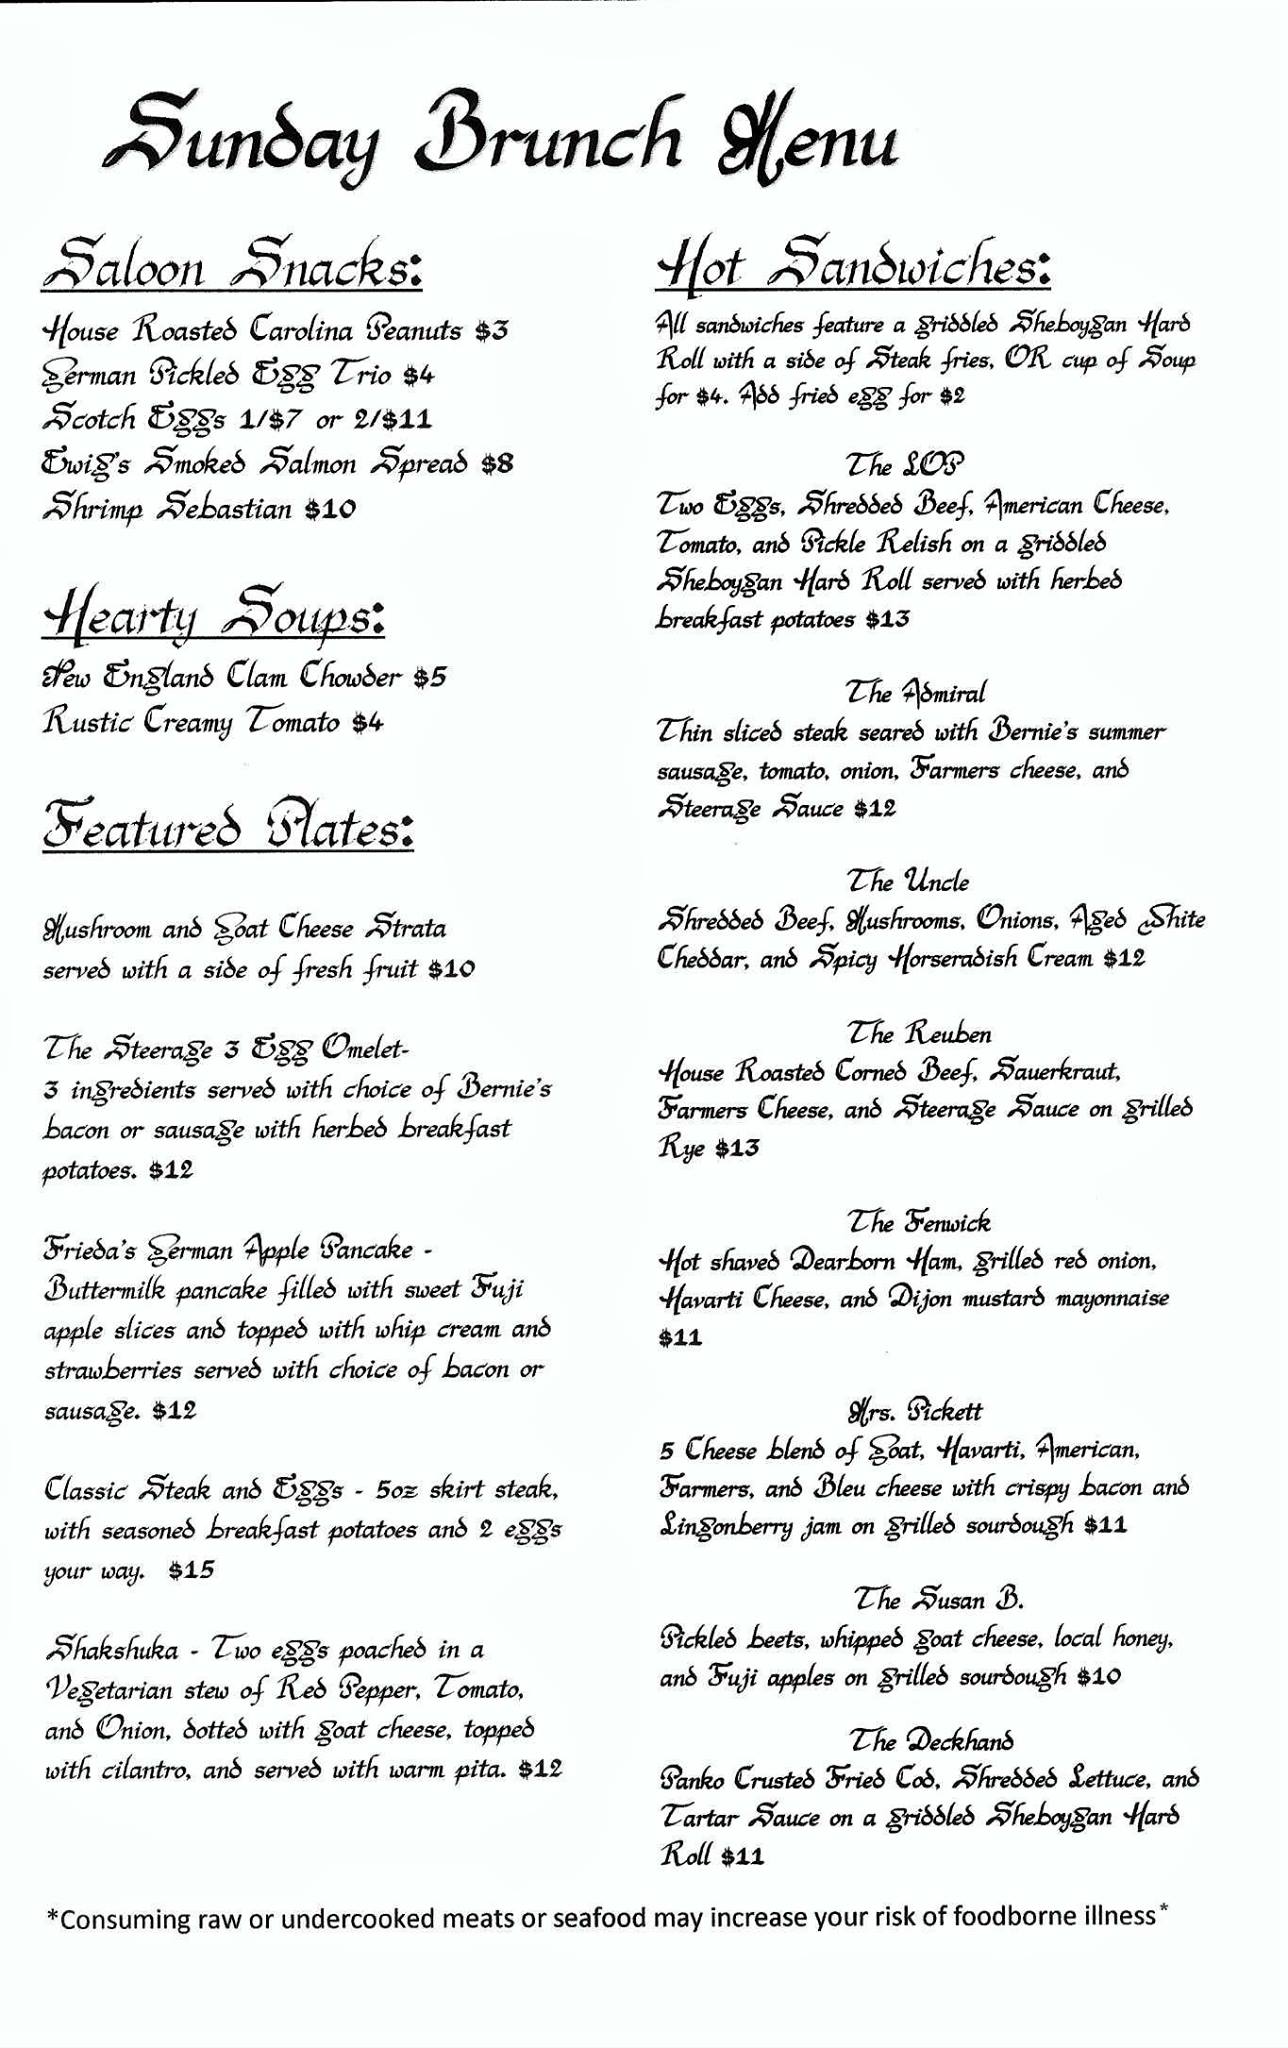 Sunday Brunch Menu
Saloon Snacks:
House Roasted Carolina Peanuts $3
German Pickled Egg Trio $4
Scotch Eggs 1/$7 or 2/$11
Ewig's Smoked Salmon Spread $8
Shrimp Sebastian $10
Hearty Soups:
New England Clam Chowder $5
Rustic Creamy Tomato $4
Featured Plates:
Mushroom and Goat Cheese Strata
served with a side of fresh fruit $10
The Steerage 3 Egg Omelet-
3 ingredients served with choice of Bernie's
bacon or sausage with herbed breakfast
potatoes. $12
Frieda's German Apple Pancake -
Buttermilk pancake filled with sweet Fuji
apple slices and topped with whip cream and
strawberries served with choice of bacon or
sausage. $12
Classic Steak and Eggs - 5oz skirt steak,
with seasoned breakfast potatoes and 2 eggs
your way. $15
Shakshuka - Two eggs poached in a
Vegetarian stew of Red Pepper, Tomato,
and Onion, dotted with goat cheese, topped
with cilantro, and served with warm pita. $12
Hot Sandwiches:
All sandwiches feature a griddled Sheboygan Hard
Roll with a side of Steak fries, OR cup of Soup
for $4. Add fried egg for $2
The LOP
Two Eggs, Shredded Beef, American Cheese,
Tomato, and Pickle Relish on a griddled
Sheboygan Hard Roll served with herbed
breakfast potatoes $13
The Admiral
Thin sliced steak seared with Bernie's summer
sausage, tomato, onion, Farmers cheese, and
Steerage Sauce $12
The Uncle
Shredded Beef, Mushrooms, Onions, Aged White
Cheddar, and Spicy Horseradish Cream $12
The Reuben
House Roasted Corned Beef, Sauerkraut,
Farmers Cheese, and Steerage Sauce on grilled
Rye $13
The Fenwick
Hot shaved Dearborn Ham, grilled red onion,
Havarti Cheese, and Dijon mustard mayonnaise
$11
Mrs. Pickett
5 Cheese blend of Goat, Havarti, American,
Farmers, and Bleu cheese with crispy bacon and
Lingonberry jam on grilled sourdough $11
The Susan B.
Pickled beets, whipped goat cheese, local honey,
and Fuji apples on grilled sourdough $10
The Deckhand
Panko Crusted Fried Cod, Shredded Lettuce, and
Tartar Sauce on a griddled Sheboygan Hard
Roll $11
*Consuming raw or undercooked meats or seafood may increase your risk of foodborne illness*